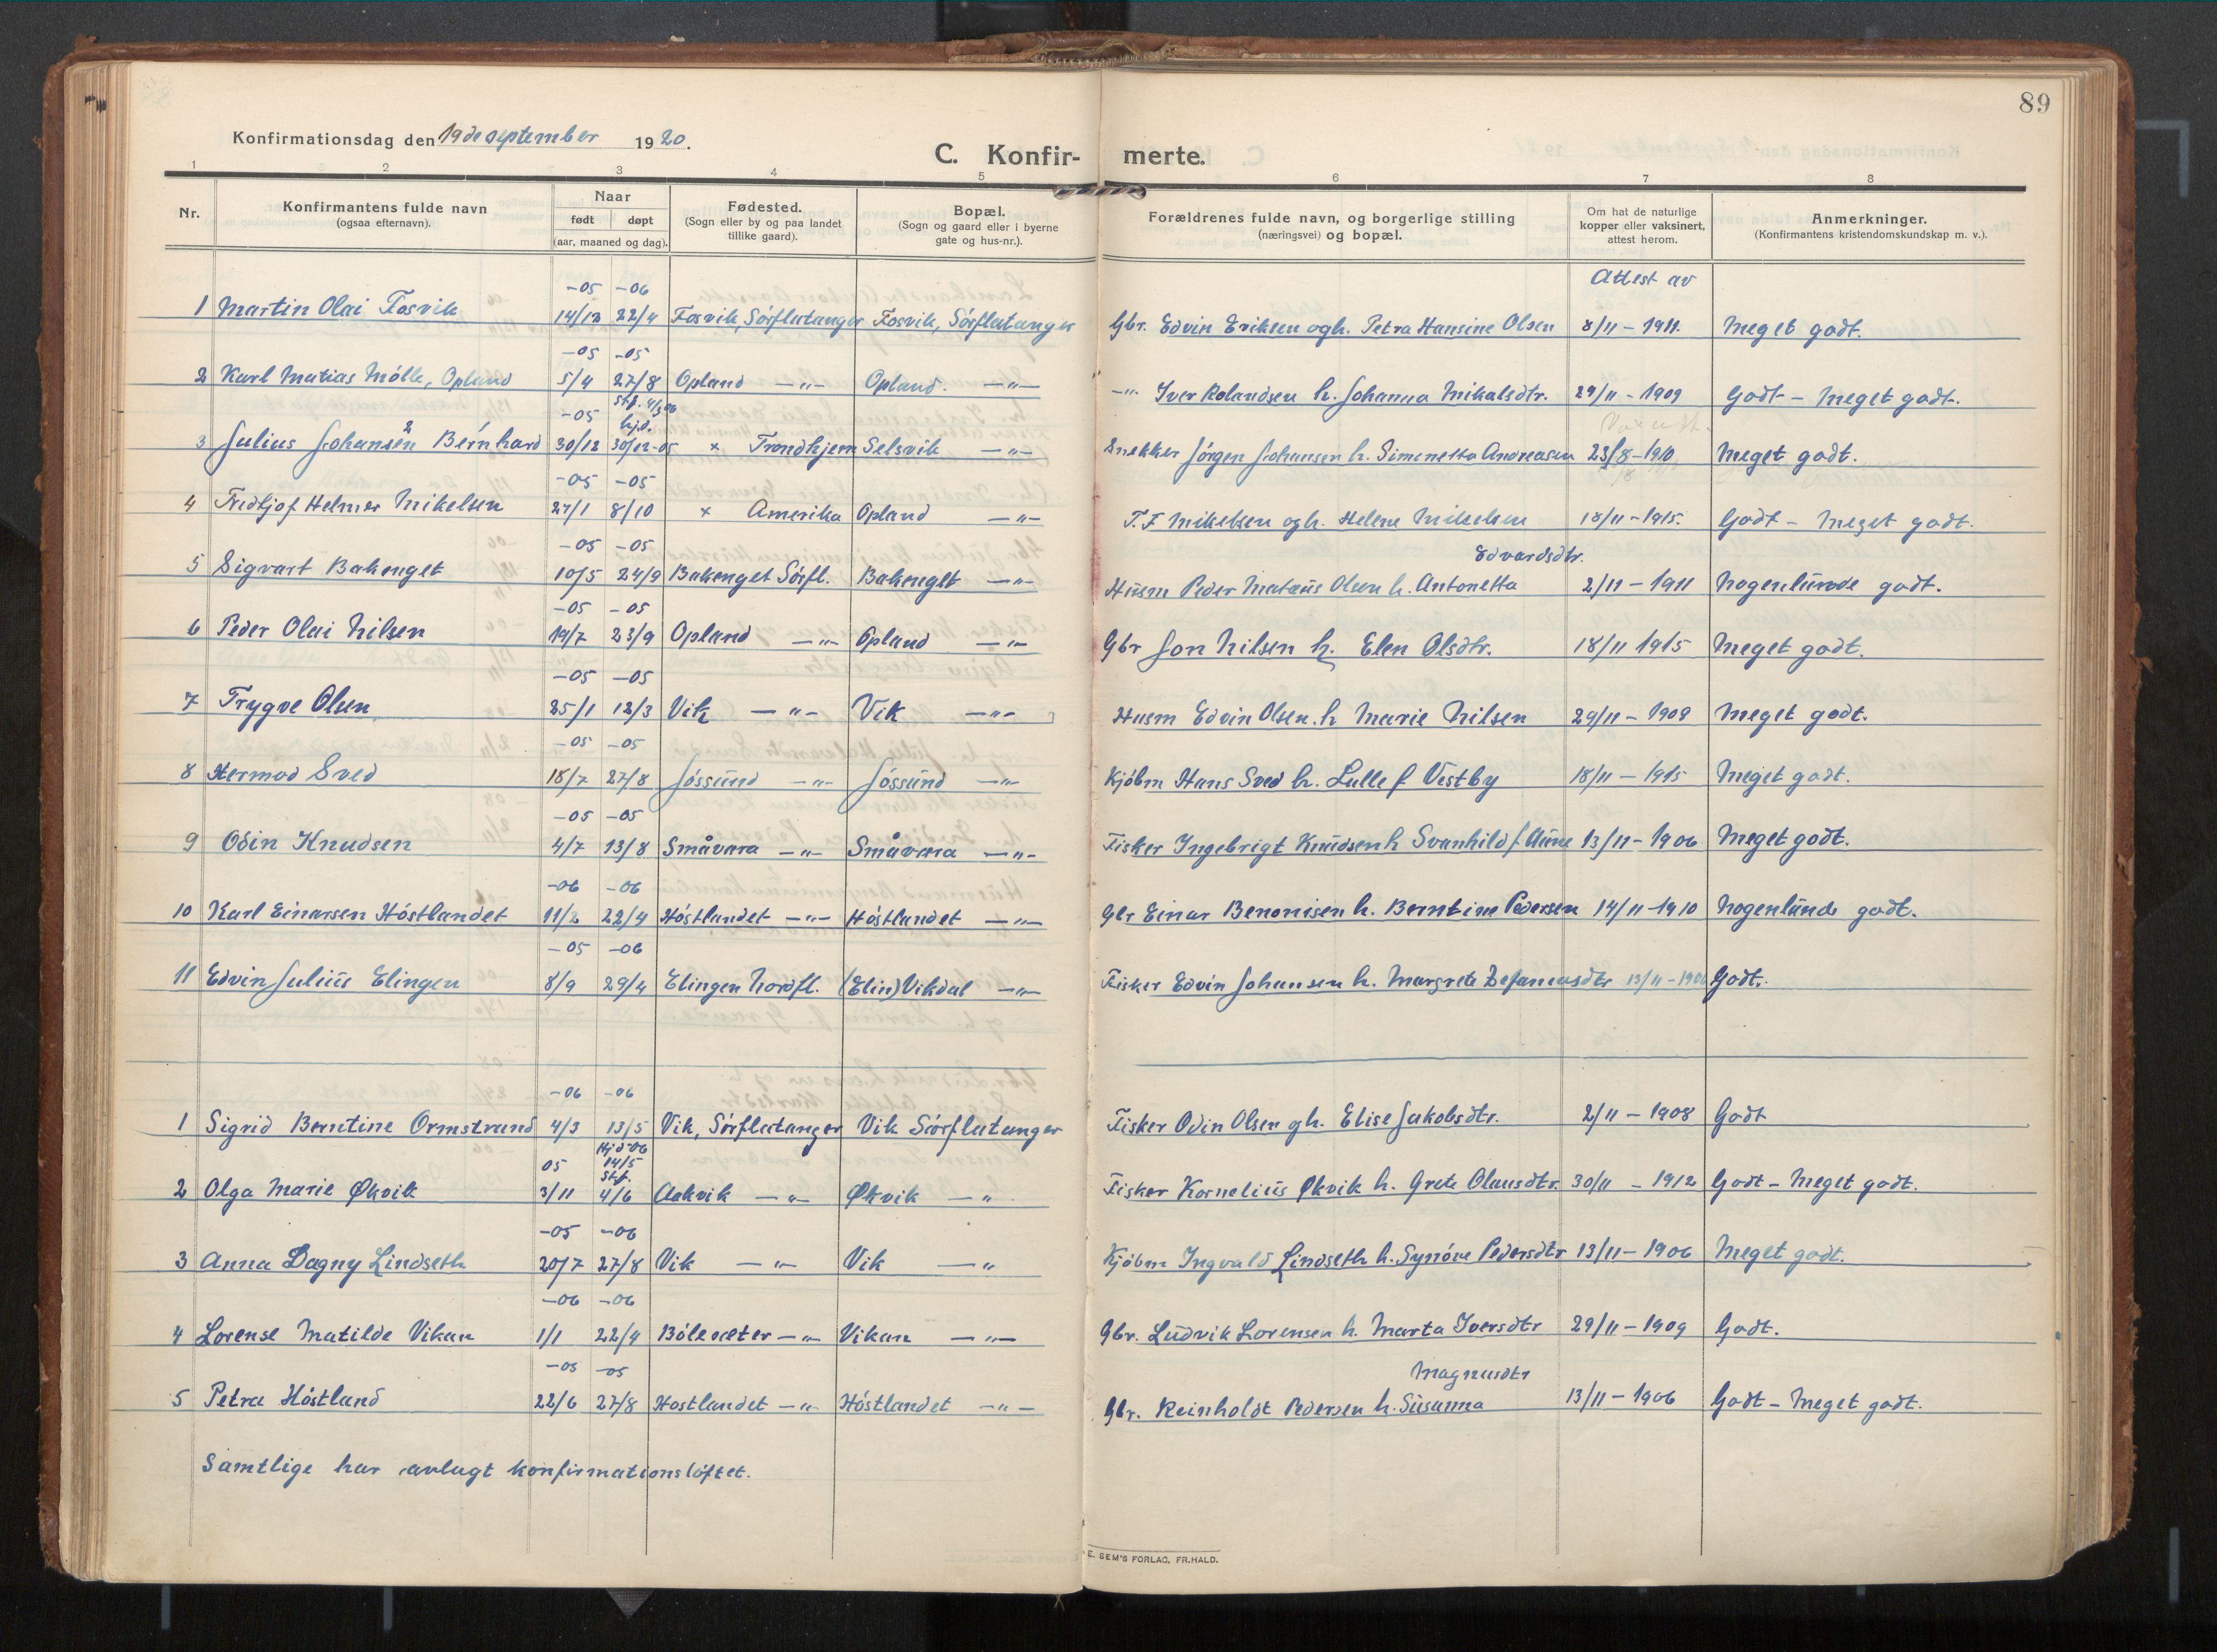 89
Konfirmationsdag den 19de september 1920.
C. Konfir- merte.
1 2 3 4 5 6 7 8
Nr. Konfirmantens fulde navn (ogsaa efternavn). Naar født døpt (aar, maaned og dag). Fødested. (Sogn eller by og paa landet tillike gaard). Bopæl. (Sogn og gaard eller i byerne gate og hus-nr.). Forældrenes fulde navn, og borgerlige stilling (næringsvei) og bopæl. Om hat de naturlige kopper eller vaksinert, attest herom. Anmerkninger. (Konfirmantens kristendomskundskap m. v.).
Attest av
-05 -06
1 Martin Olai Fosvik 14/12 22/4 Fosvik, Sörflatanger Fosvik, Sörflatanger Gbr. Edvin Eriksen ogh. Petra Hansine Olsen 8/11 - 1911. Meget godt.
-05 -05
2 Karl Matias Mölle, Opland 5/4 27/8 Opland -"- Opland. -"- -"- Iver Rolandsen h. Johanna Mikalsdtr. 29/11 - 1909 Godt - Meget godt.
-05 Stf. 4/3 06 hjd.
3 Julius Johansen 2 Bernhard 30/12 30/12-05 x Trondhjem Selsvik -"- Snekker Jörgen Johansen h. Simenetta Andreasen 23/8 - 1910 Meget godt.
-05 -05
4 Fridtjof Helmer Mikelsen 27/1 8/10 x Amerika Opland -"- T. F Mikelsen ogh. Helene Mikelsen 18/11 - 1915. Godt - Meget godt.
-05 -05 Edvardsdtr.
5 Sigvart Bakenget 10/5 24/9 Bakenget Sörfl. Bakenget -"- Husm Peder Mataus Olsen h. Antonetta 2/11 - 1911 Nogenlunde godt.
-05 -05
6 Peder Olai Nilsen 19/7 23/9 Opland -"- Opland -"- Gbr Jon Nilsen h. Elen Olsdtr. 18/11 1915 Meget godt.
-05 -05
7 Trygve Olsen 25/1 12/3 Vik -"- Vik -"- Husm Edvin Olsen. h Marie Nilsen 29/11 - 1909 Meget godt.
-05 -05
8 Hermod Sved 18/7 27/8 Jössund -"- Jössund -"- Kjöbm Hans Sved h. Lulle f Vestby 18/11 - 1915 Meget godt.
-05 -05
9 Odin Knudsen 4/7 13/8 Småvara -"- Småvara -"- Fisker Ingebrigt Knudsen h Svanhild f. Aune 13/11 - 1906 Meget godt.
-06 -06
10 Karl Einarsen Höstlandet 11/2 22/4 Höstlandet -"- Höstlandet -"- Gbr Einar Benonisen h. Berntine Pedersen 14/11-1910 Nogenlunde godt.
-05 -06
11 Edvin Julius Elingen 8/9 29/4 Elingen Nordfl. (Elin) Vikdal -"- Fisker Edvin Johansen h. Margrete Zefaniasdtr 13/11 - 1906 Godt.
-06 -06
1 Sigrid Berntine Ormstrand 4/3 13/5 Vik, Sörflatanger Vik Sörflatanger Fisker Odin Olsen ogh. Elise Jakobsdtr. 2/11 - 1908 Godt
05 Hjd 06 14/5 Stf.
2 Olga Marie Økvik 3/11 4/6 Aakvik -"- Økvik -" Fisker Kornelius Økvik h. Grete Olausdtr. 30/11 - 1912 Godt - Meget godt.
-05 -06
3 Anna Dagny Lindseth 20/7 27/8 Vik -"- Vik -" Kjöbm Ingvald Lindseth h. Synöve Pedersdtr 13/11 - 1906 Meget godt.
-06 -06
4 Lorense Matilde Vikan 1/1 22/4 Bölesæter -"- Vikan -"- Gbr. Ludvik Lorensen h. Marta Iversdtr 29/11 - 1909 Godt.
-05 -05 Magnusdtr
5 Petra Höstland 22/6 27/8 Hostlandet -"- Höstlandet -"- Gbr. Reinholdt Pedersen h. Susanna 13/11 - 1906 Godt - Meget godt.
Samtlige har avlagt konfirmationslöftet.
E. SEM'S FORLAG, FR.HALD.